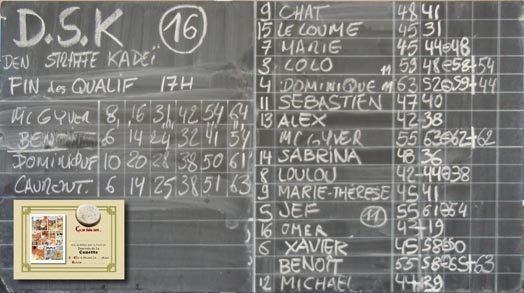 D.S.K 16
DEN STRAFFE KADEÏ
FIN des QUALIF 17H
MCGYVER 8 16 31 42 54 64
6 14 24 32 41 54
DOMINIQUE 10 20 28 38 50 61
LAURENT 6 14 25 38 51 63
9 CHAT 48 41
15 LE LOUME 45 31
7 MARIE 45 44 48
3 LOLO 11 59 48 58+54
4 DOMINIQUE 11 63 52 59+44
11 SÉBASTIEN 47 40
13 ALEX 42 38
MCGYVER 55 63 62+62
14 SABRINA 48 36
8 LOULOU 42 44 38
9 MARIE-THÉRÈSE 45 41
5 JEF 11 55 61 54
16 OMER 42 19
6 XAVIER 45 58 60
BENOÎT 55 58 65+63
12 MICHAEL 44 39
Canette